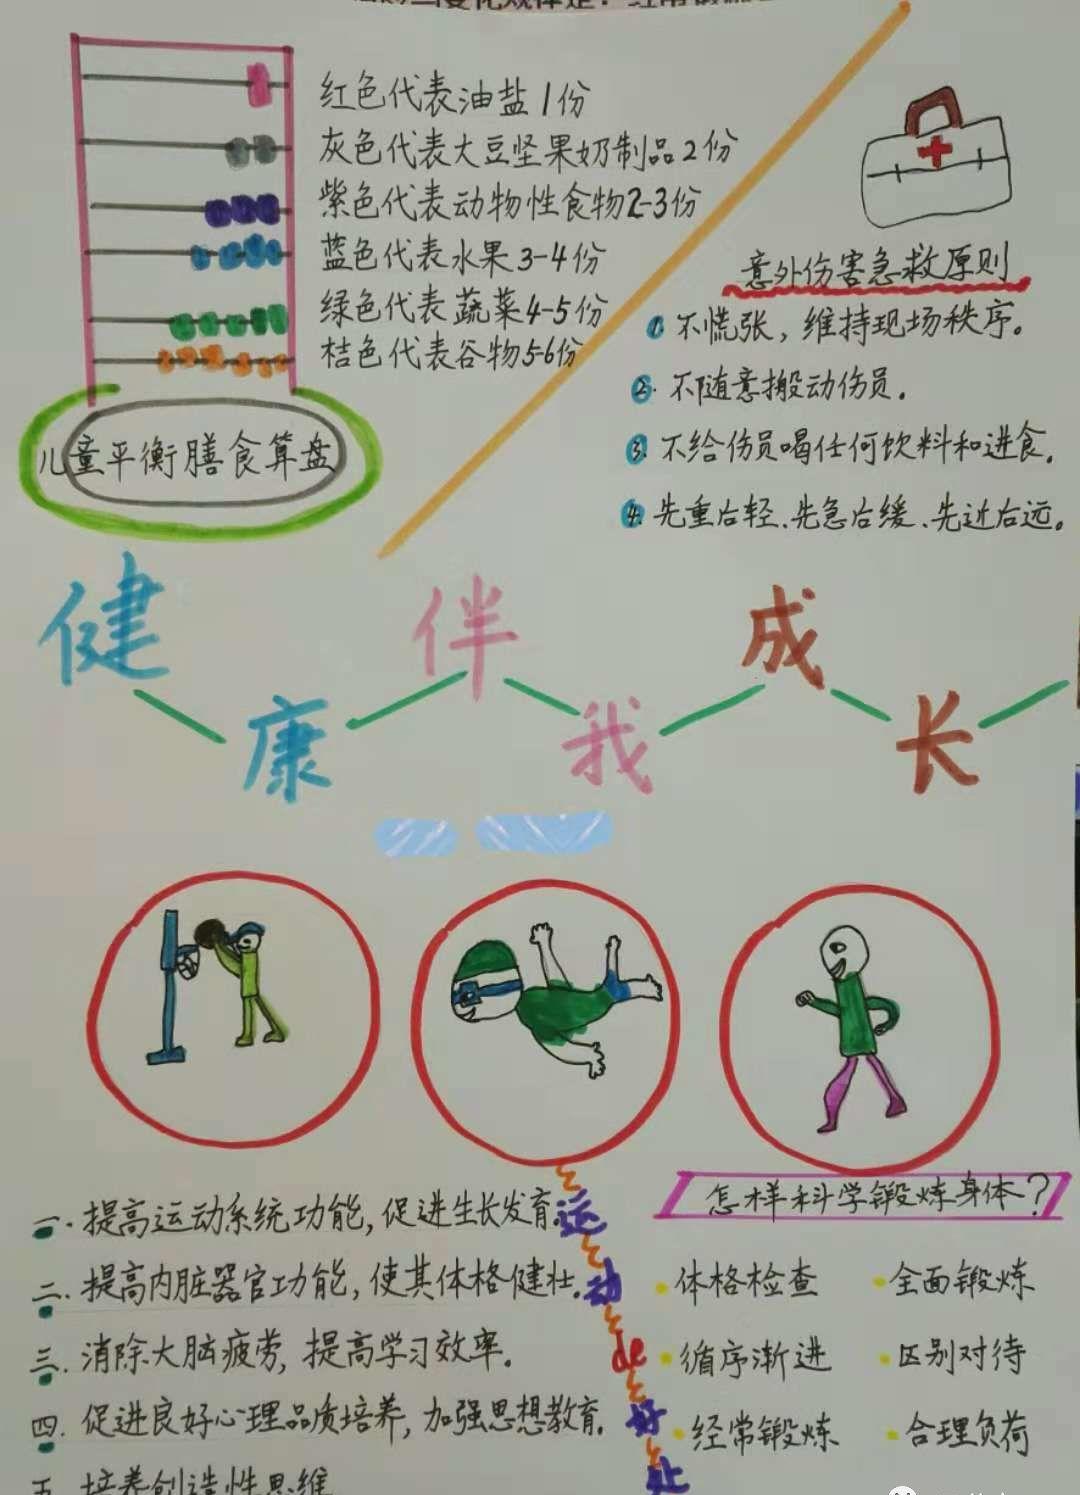 红色代表油盐1份
灰色代表大豆坚果奶制品2份
紫色代表动物性食物2-3份
蓝色代表水果3-4份
绿色代表蔬菜4-5份
桔色代表谷物5-6份
儿童平衡膳食算盘
意外伤害急救原则
1. 不慌张，维持现场秩序。
2. 不随意搬动伤员。
3. 不给伤员喝任何饮料和进食。
4. 先重后轻、先急后缓、先近后远。
健康伴我成长
一. 提高运动系统功能，促进生长发育。
二. 提高内脏器官功能，使其体格健壮。
三. 消除大脑疲劳，提高学习效率。
四. 促进良好心理品质培养，加强思想教育。
五. 培养创造性思维
运动de好处
怎样科学锻炼身体？
·体格检查 ·全面锻炼
·循序渐进 ·区别对待
·经常锻炼 ·合理负荷